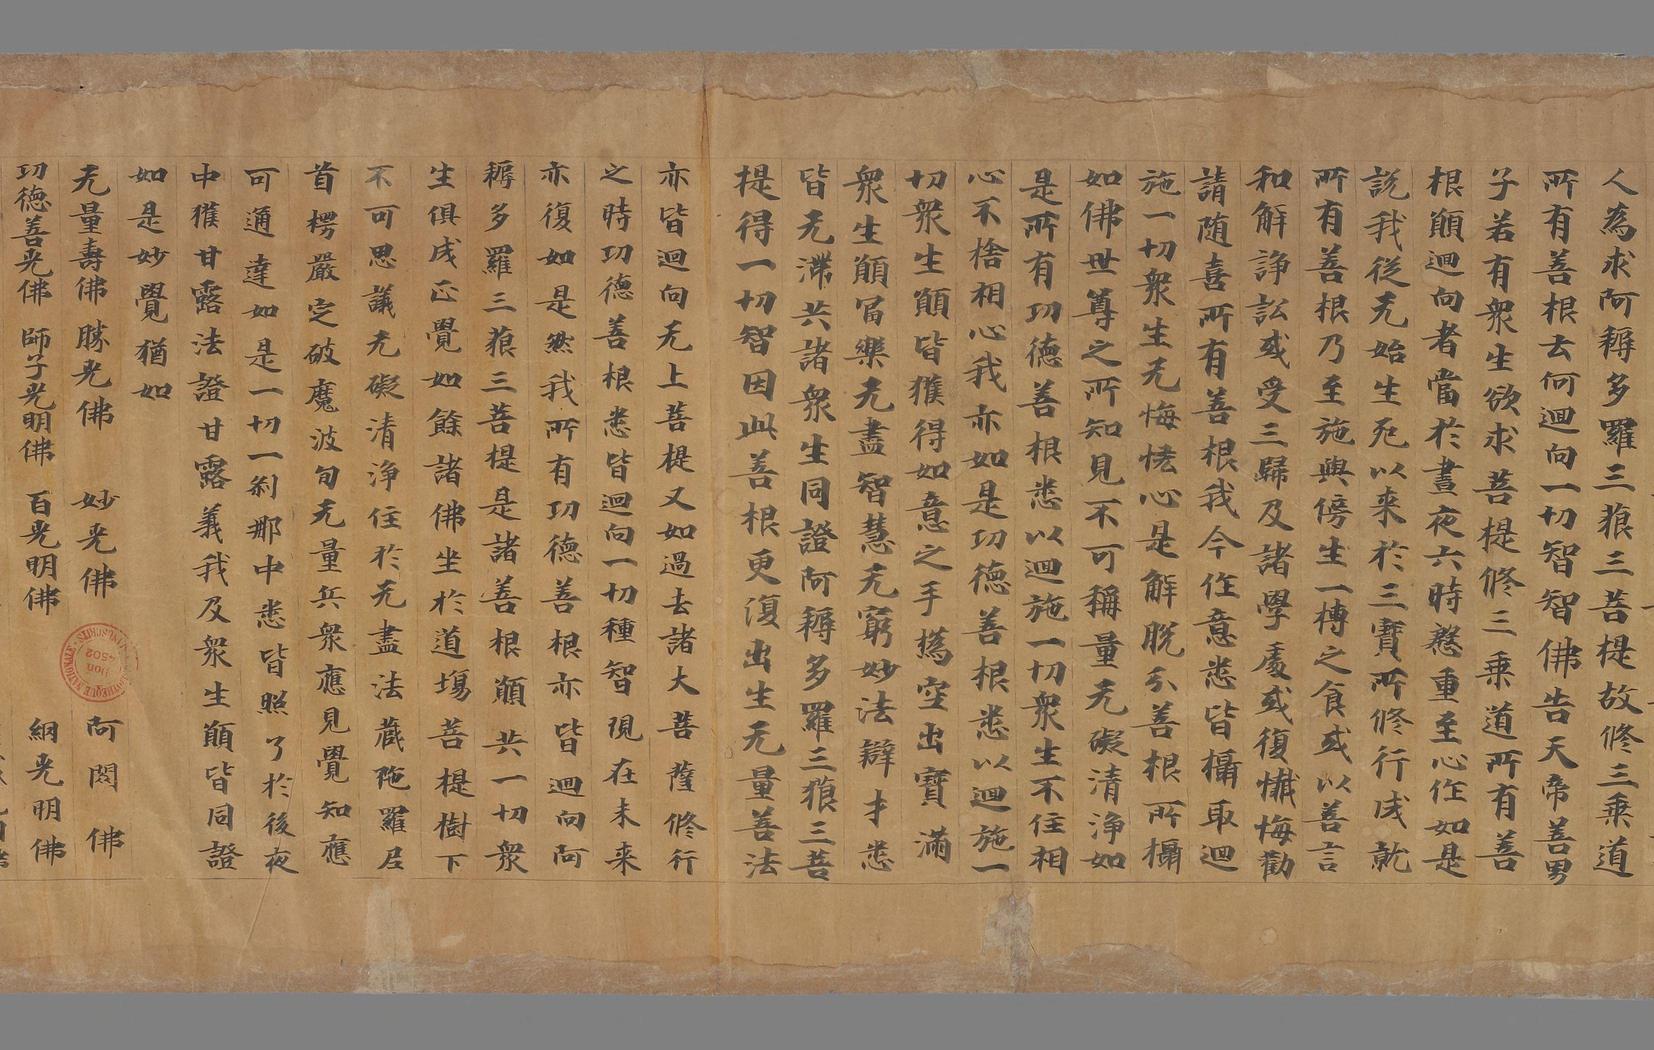 人為求阿耨多羅三藐三菩提故修三乘道
所有善根云何迴向一切智智佛告天帝善男
子若有眾生欲求菩提修三乘道所有善
根願迴向者當於晝夜六時慇重至心作如是
說我從无始生死以来於三寶所修行成就
所有善根乃至施與傍生一摶之食或以善言
和解諍訟或受三歸及諸學處或復懺悔勸
請随喜所有善根我今作意悉皆攝取迴
施一切眾生无悔恡心是解脫分善根所攝
如佛世尊之所知見不可稱量无礙清淨如
是所有功德善根悉以迴施一切眾生不住相
心不捨相心我亦如是功德善根悉以迴施一
切眾生願皆獲得如意之手撝空出寶滿
眾生願冨樂无盡智慧无窮妙法辯才悉
皆无滯共諸眾生同證阿耨多羅三藐三菩
提得一切智因此善根更復出生无量善法
亦皆迴向无上菩提又如過去諸大菩薩修行
之時功德善根悉皆迴向一切種智現在未来
亦復如是然我所有功德善根亦皆迴向阿
耨多羅三藐三菩提是諸善根願共一切眾
生俱成正覺如餘諸佛坐於道場菩提樹下
不可思議无礙清淨住於无盡法藏陁羅尼
首楞嚴定破魔波旬无量兵眾應見覺知應
可通達如是一切一剎那中悉皆照了於後夜
中獲甘露法證甘露義我及眾生願皆同證
如是妙覺猶如
无量壽佛 勝光佛 妙光佛 阿閦佛
功德善光佛 師子光明佛 百光明佛 網光明佛